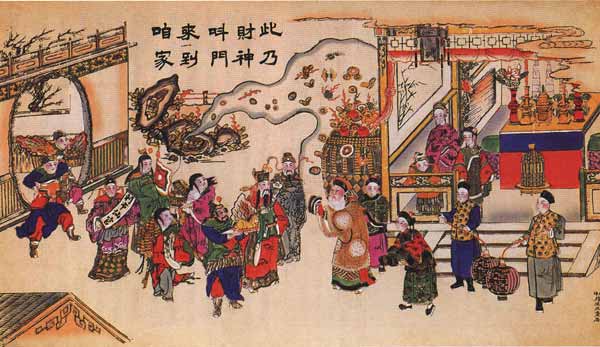 此乃
財神
叫門
來到
咱家